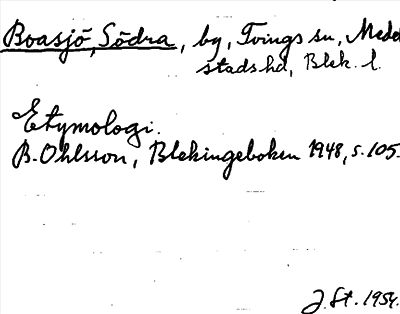 Boasjö, Södra, by, Tvings sn, Medel
stads hd, Blek. l.
Etymologi.
B. Ohlsson, Blekingeboken 1948, s. 105.
J. St. 1954.